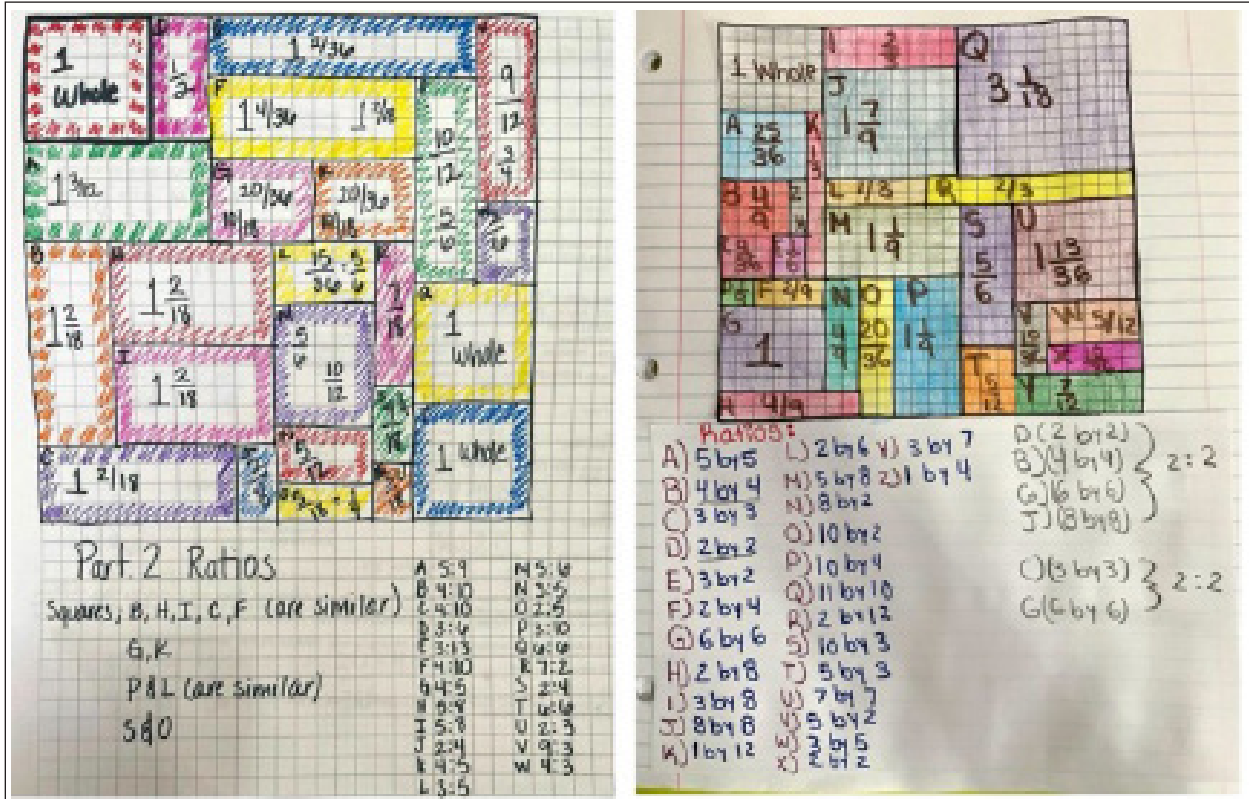 1
Whole
1/2
1 2/36
9/12
3/4
F
1 4/36
10/12
5/6
A
1 3/12
G
20/36
20/36
B
1 2/18
H
1 2/18
L
15/36
5/6
I
1 2/18
10/12
7/18
1
Whole
C
1 2/18
1 whole
Part 2 Ratios
Squares, B, H, I, C, F (are similar)
G, K
P & L (are similar)
S & O
A 5:9
B 4:10
C 4:10
D 3:6
E 3:13
F 4:10
G 4:5
H 5:8
I 5:8
J 2:4
K 4:5
L 3:5
N 3:5
O 2:5
P 3:10
Q 6:6
R 7:2
S 2:4
T 6:6
U 2:3
V 9:3
W 4:3
1 Whole
I
J
1 7/9
Q
3 1/18
A
25/36
K
1/3
B
4/9
L 1/3
R 2/3
M
1 1/9
S
5/6
U
1 13/36
F 2/9
G
1
N
4/9
O
20/36
P
1 1/9
W 5/12
X
T
5/12
Y
7/12
H 4/9
Ratios:
A) 5 by 5
B) 4 by 4
C) 3 by 3
D) 2 by 2
E) 3 by 2
F) 2 by 4
G) 6 by 6
H) 2 by 8
I) 3 by 8
J) 8 by 8
K) 1 by 12
L) 2 by 6
M) 5 by 8
N) 8 by 2
O) 10 by 2
P) 10 by 4
Q) 11 by 10
R) 2 by 12
S) 10 by 3
T) 5 by 3
U) 7 by 7
V) 5 by 2
W) 3 by 5
X) 2 by 2
Y) 3 by 7
Z) 1 by 4
D (2 by 2)
B) (4 by 4)
G) (6 by 6)
J) (8 by 8)
2:2
C) (3 by 3)
G (6 by 6)
2:2